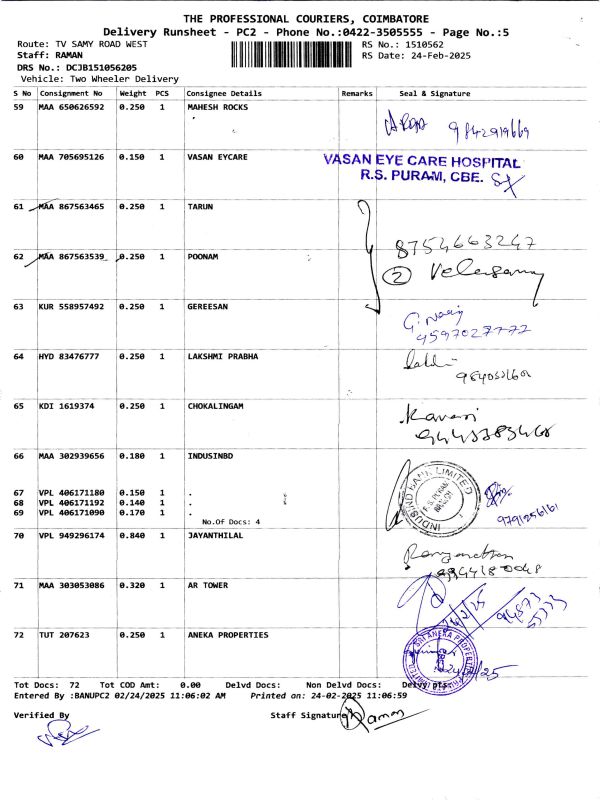 THE PROFESSIONAL COURIERS, COIMBATORE
Delivery Runsheet - PC2 - Phone No.:0422-3505555 - Page No.:5
Route: TV SAMY ROAD WEST RS No.: 1510562
Staff: RAMAN RS Date: 24-Feb-2025
DRS No.: DCJB151056205
Vehicle: Two Wheeler Delivery
S No Consignment No Weight PCS Consignee Details Remarks Seal & Signature
59 MAA 650626592 0.250 1 MAHESH ROCKS
9842919669
60 MAA 705695126 0.150 1 VASAN EYCARE VASAN EYE CARE HOSPITAL
R.S. PURAM, CBE.
61 MAA 867563465 0.250 1 TARUN
8754663247
62 MAA 867563539 0.250 1 POONAM 2
63 KUR 558957492 0.250 1 GEREESAN
64 HYD 83476777 0.250 1 LAKSHMI PRABHA
65 KDI 1619374 0.250 1 CHOKALINGAM
66 MAA 302939656 0.180 1 INDUSINBD
INDUSIND BANK LIMITED
R.S. PURAM
BRANCH
67 VPL 406171180 0.150 1 .
68 VPL 406171192 0.140 1 .
69 VPL 406171090 0.170 1 .
No.Of Docs: 4
70 VPL 949296174 0.840 1 JAYANTHILAL
71 MAA 303053086 0.320 1 AR TOWER
24/2/25
72 TUT 207623 0.250 1 ANEKA PROPERTIES
SRI ANEKA PROPERTIES
Tot Docs: 72 Tot COD Amt: 0.00 Delvd Docs: Non Delvd Docs: Delvy pts:
Entered By :BANUPC2 02/24/2025 11:06:02 AM Printed on: 24-02-2025 11:06:59
Verified By Staff Signature Raman